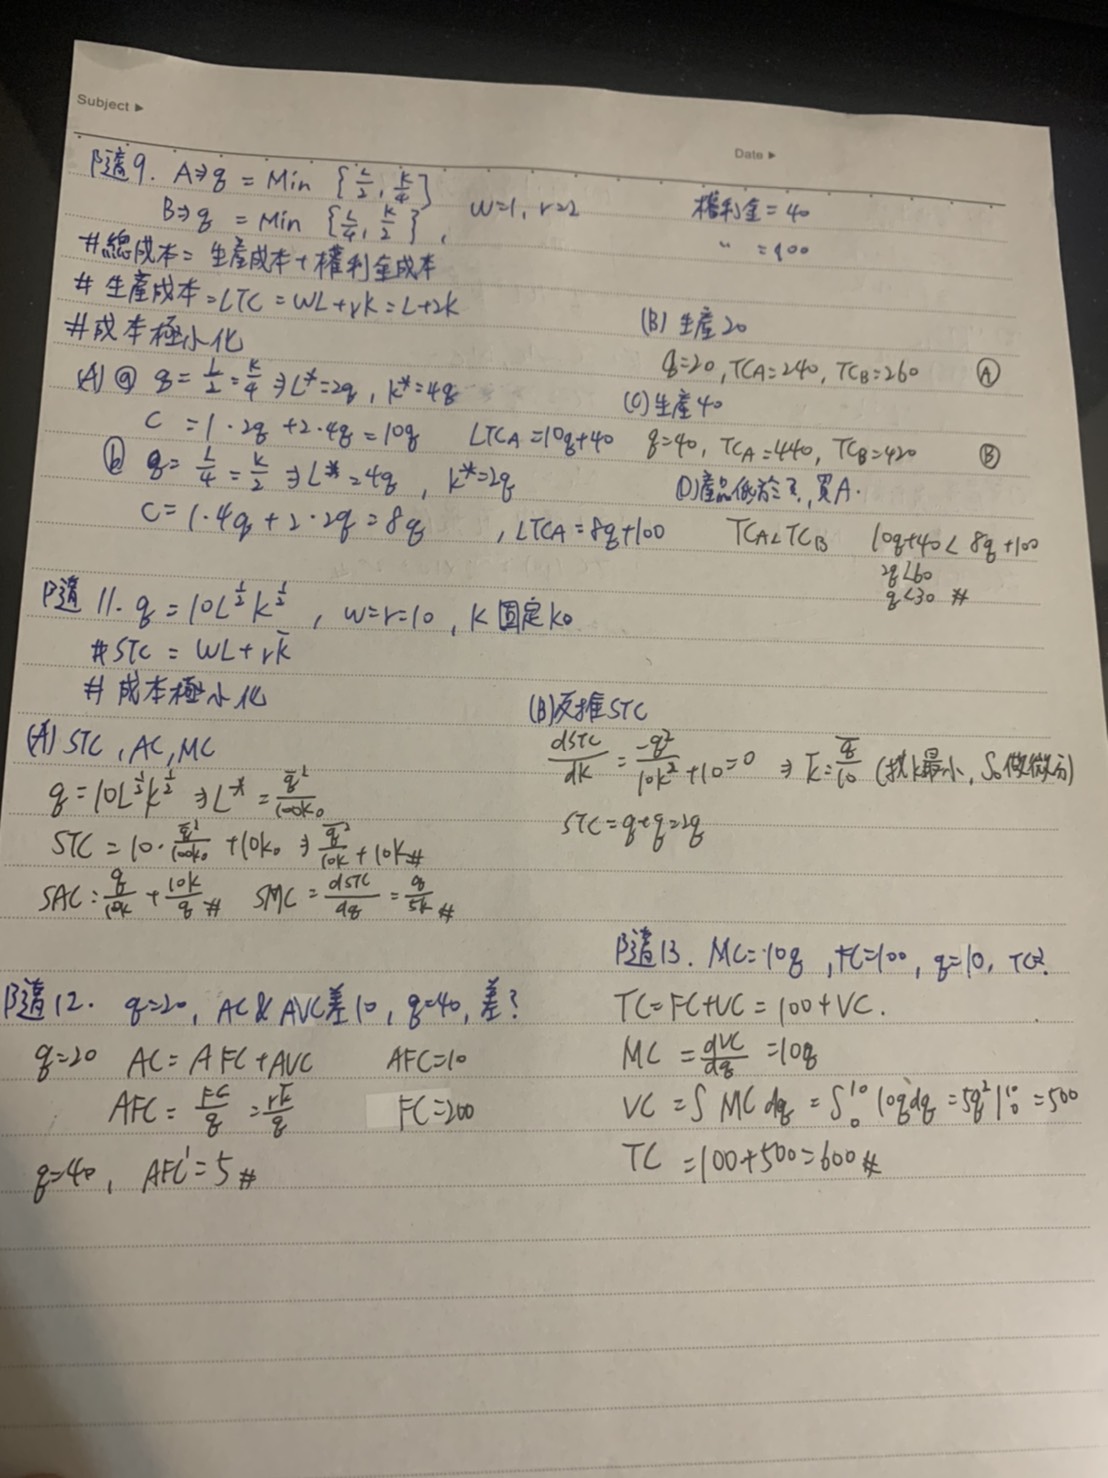 Subject ▶
Date ▶
隨9. A⇒q = Min {L/2, K/4}
B⇒q = Min {L/4, K/2}, w=1, r=2
權利金=40
〃 =100
#總成本= 生產成本+權利金成本
# 生產成本=LTC = WL+rK=L+2K
#成本極小化
(A) ⓐ q= L/2 = K/4 ⇒L*=2q, K*=4q
C = 1·2q +2·4q=10q LTCA=10q+40
ⓑ q= L/4 = K/2 ⇒L*=4q, K*=2q
C=1·4q+2·2q=8q , LTCA=8q+100
(B) 生產20
q=20, TCA=240, TCB=260 Ⓐ
(C)生產40
q=40, TCA=440, TCB=420 Ⓑ
(D)產品低於?, 買A.
TCA<TCB 10q+40< 8q+100
2q<60
q<30 #
隨11. q=10L^½K^½, w=r=10, K固定K0
#STC = WL+rK̄
# 成本極小化
(A) STC, AC, MC
q=10L^½K^½ ⇒L*= q̄²/100K0
STC=10·q̄²/100K0 +10K0 ⇒ q̄²/10K +10K#
SAC= q/10K + 10K/q # SMC= dSTC/dq = q/5K #
(B)反推STC
dSTC/dK = -q²/10K² +10=0 ⇒ K= q̄/10 (找K最小, So做微分)
STC=q+q=2q
隨12. q=20, AC&AVC差10, q=40, 差?
q=20 AC=AFC+AVC AFC=10
AFC= FC/q = rK̄/q FC=200
q=40, AFC'=5 #
隨13. MC=10q, FC=100, q=10, TC?
TC=FC+VC=100+VC.
MC = dVC/dq =10q
VC =∫ MC dq = ∫₀¹⁰ 10qdq=5q²|₀¹⁰ =500
TC =100+500=600#